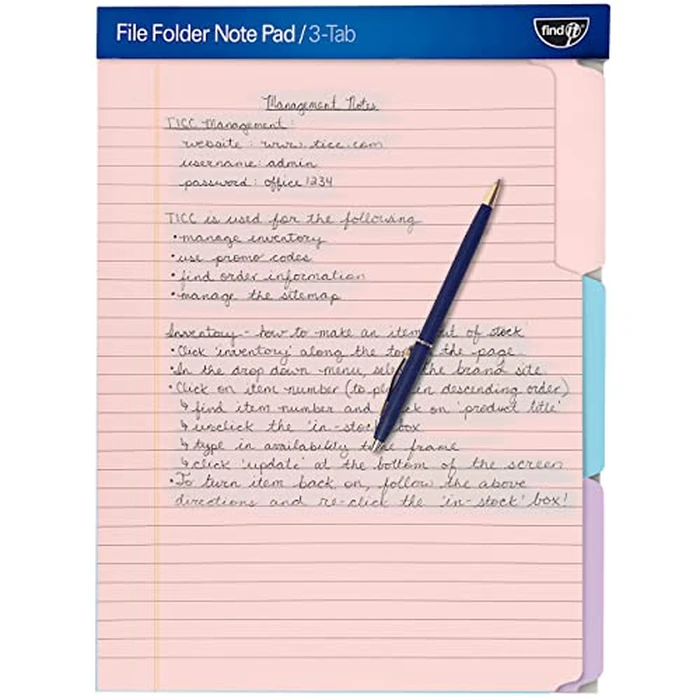 File Folder Note Pad / 3-Tab
find it
Management Notes
TICC Management:
website: www.ticc.com
username: admin
password: office 1234
TICC is used for the following
• manage inventory
• use promo codes
• find order information
• manage the sitemap
Inventory - how to make an item out of stock
• Click 'inventory' along the the page
• In the drop down menu, the brand site
• Click on item number (to in descending order)
↳ find item number and on 'product title'
↳ unclick the 'in-stock box
↳ type in availability frame
↳ click 'update' at the bottom of the screen
• To turn item back on, follow the above
directions and re-click the 'in-stock' box!